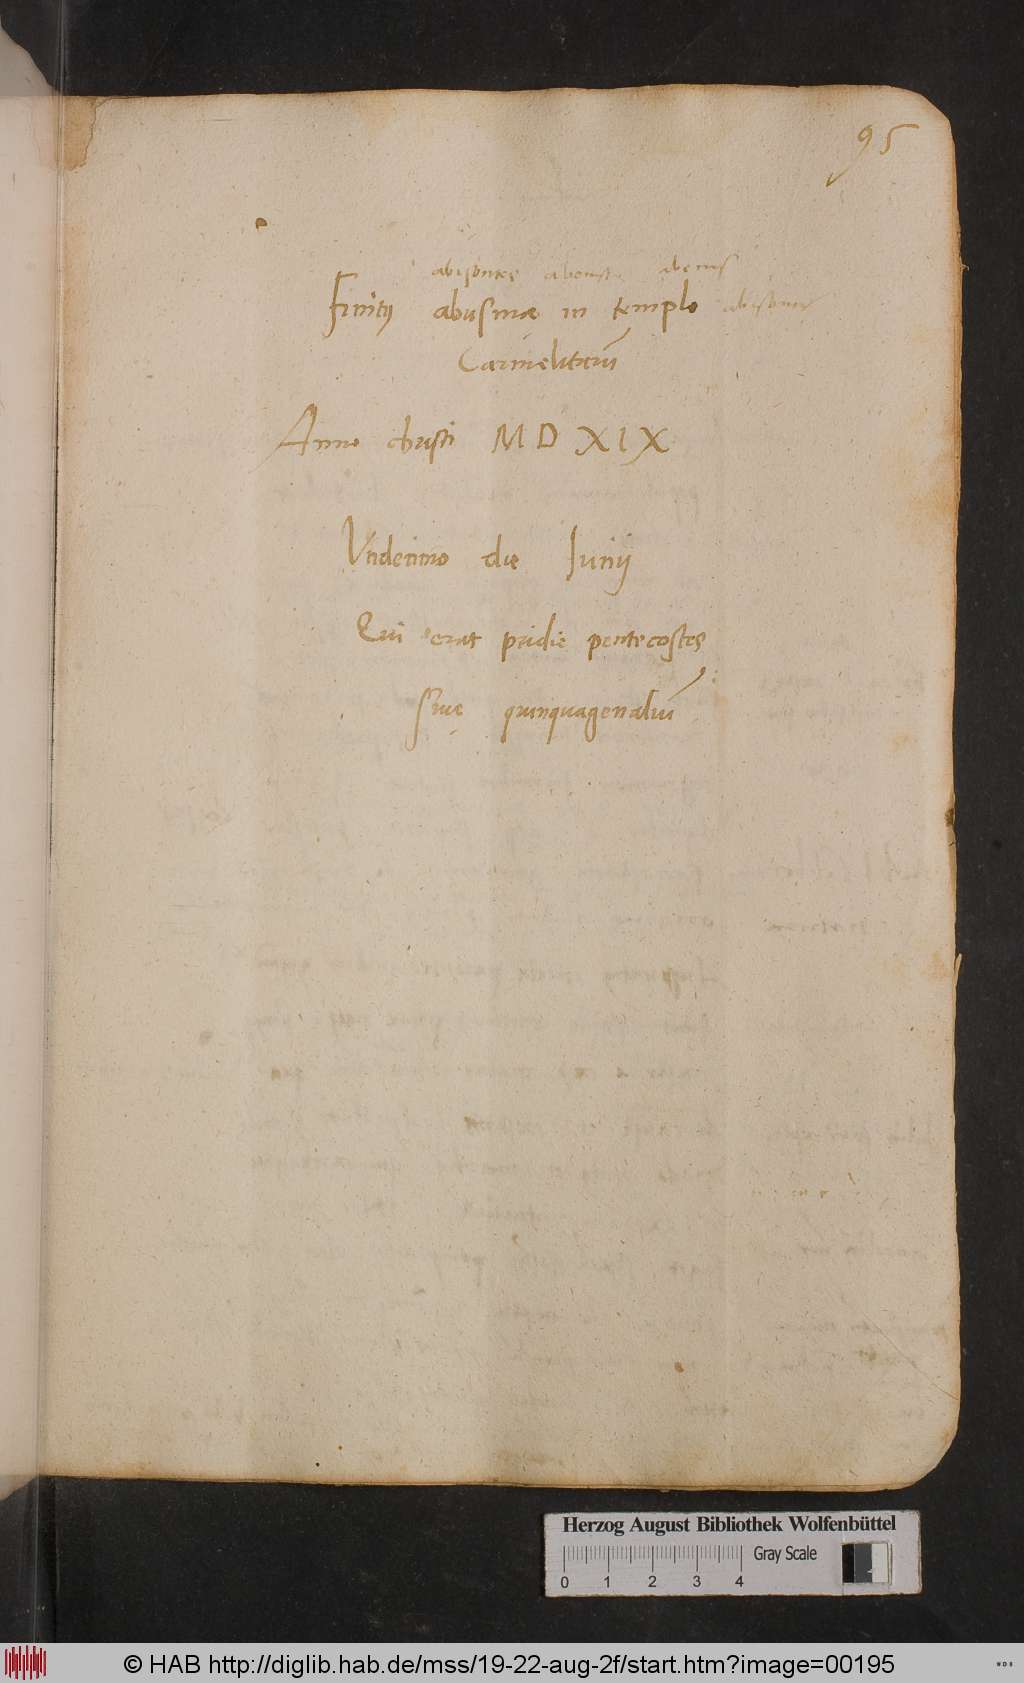 95
abisontes abonst abenis
Finity abusinae in templo abisonte
Carmelitarū
Anno christi MDXIX
Vndecimo die Junij
Qui erat pridie pentecostes
siue quinquagenaliū
Herzog August Bibliothek Wolfenbüttel
Gray Scale
0 1 2 3 4
© HAB http://diglib.hab.de/mss/19-22-aug-2f/start.htm?image=00195